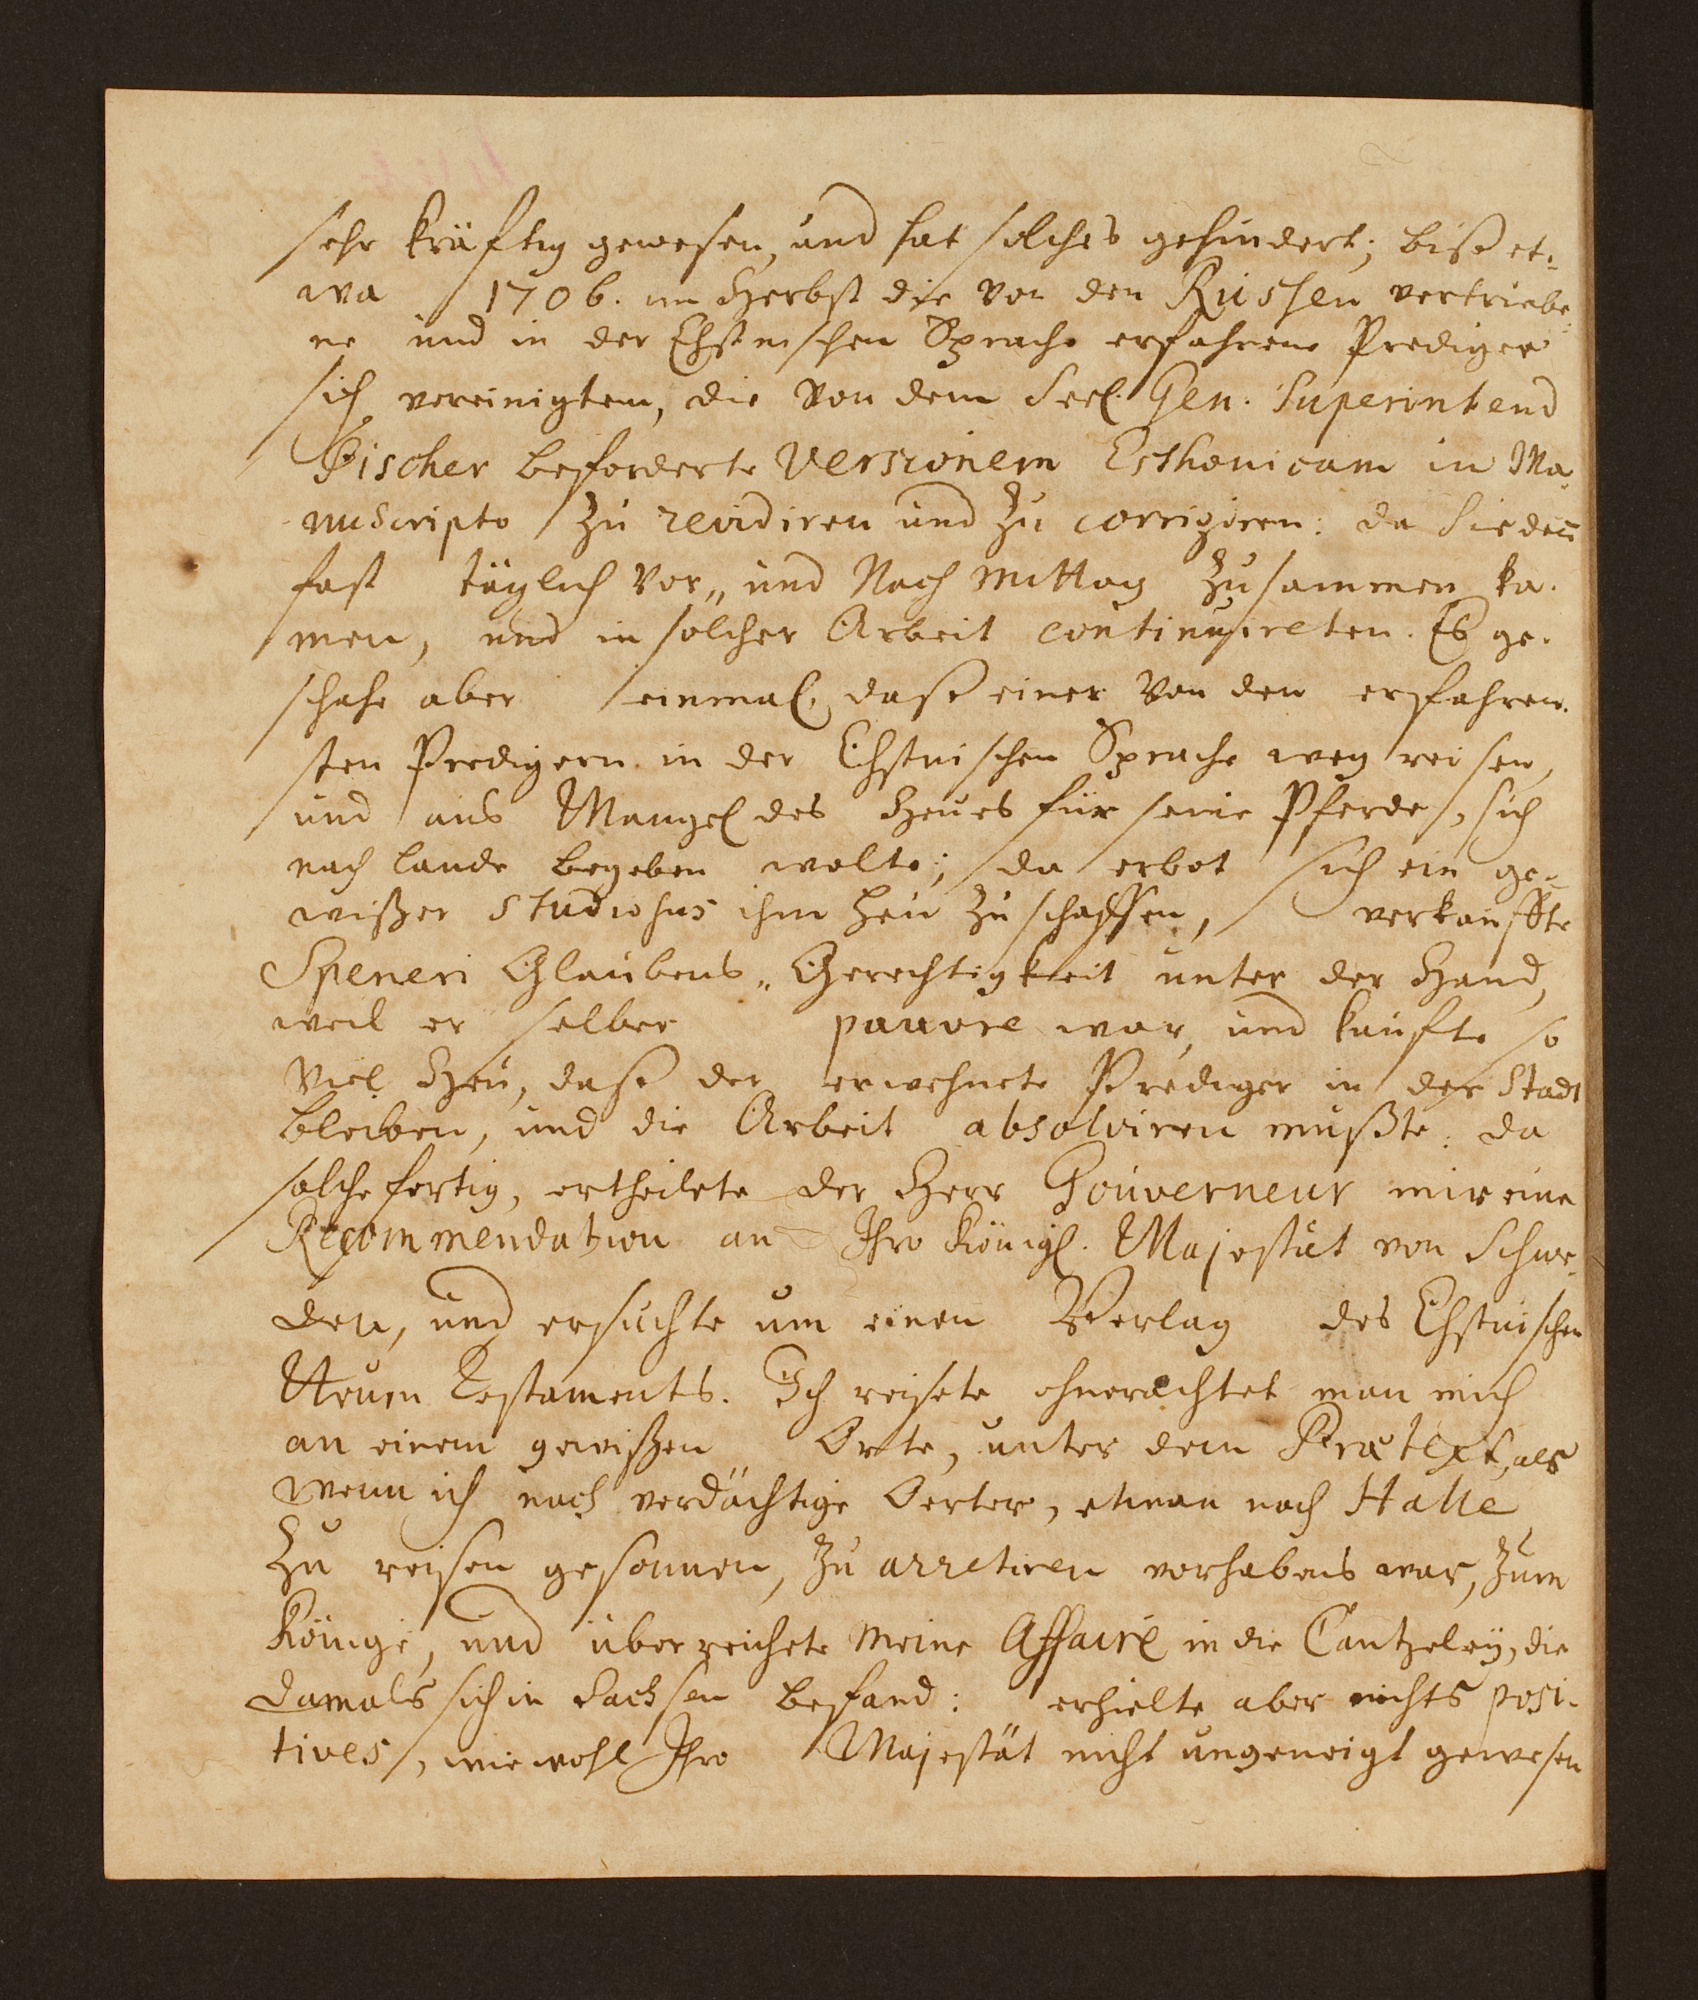 sehr kräftig gewesen, und hat solches gehindert; biß et-
wa 1706. im Herbst die von den Russen vertriebe-
ne und in der Ehstnischen Sprache erfahrene Prediger
sich vereinigten, die von dem Seel. Gen. Superintend
Fischer beforderte Versionem Esthonicam in Ma-
nuscripto zu revidiren und zu corrigiren: da Sie den
fast täglich Vor„ und Nach Mittag zusammen ka-
men, und in solcher Arbeit continuireten. Es ge-
schahe aber einmal, daß einer von den erfahren-
sten Predigern in der Ehstnischen Sprache weg reisen,
und aus Mangel des Heues für seine Pferde, sich
nach Lande begeben wolte; da erbot sich ein ge-
wißer Studiosus ihm Heu zu schaffen, verkauffte
Speneri Glaubens„ Gerechtigkeit unter der Hand,
weil er selber pauvre war, und kaufte so
viel Heu, daß der erwehnete Prediger in der Stadt
bleiben, und die Arbeit absolviren mußte: da
solche fertig, ertheilete der Herr Gouverneur mir eine
Recommendation an Ihro Königl. Majestät von Schwe-
den, und ersuchte um einen Verlag des Ehstnischen
Neuen Testaments. Ich reisete ohnerachtet man mich
an einem gewißen Orte, unter dem Prætext, als
wenn ich nach verdächtige Oerter, etwan nach Halle
zu reisen gesonnen, zu arretiren vorhabens war, zum
Könige, und überreichete meine Affaire in die Cantzeley, die
damals sich in Sachsen befand: erhielte aber nichts posi-
tives, wiewohl Ihro Majestät nicht ungeneigt gewesen